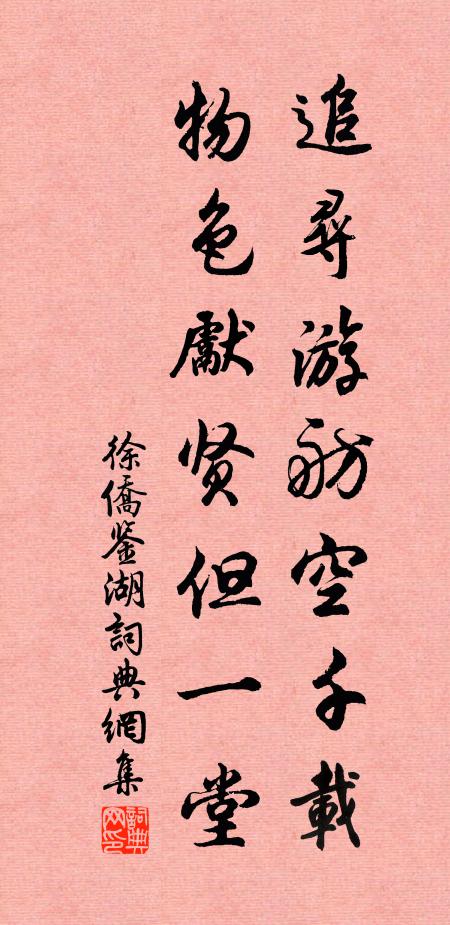 追尋游舫空千載
物色獻贤但一堂
徐僑鉴湖詞典網集
詞典网印